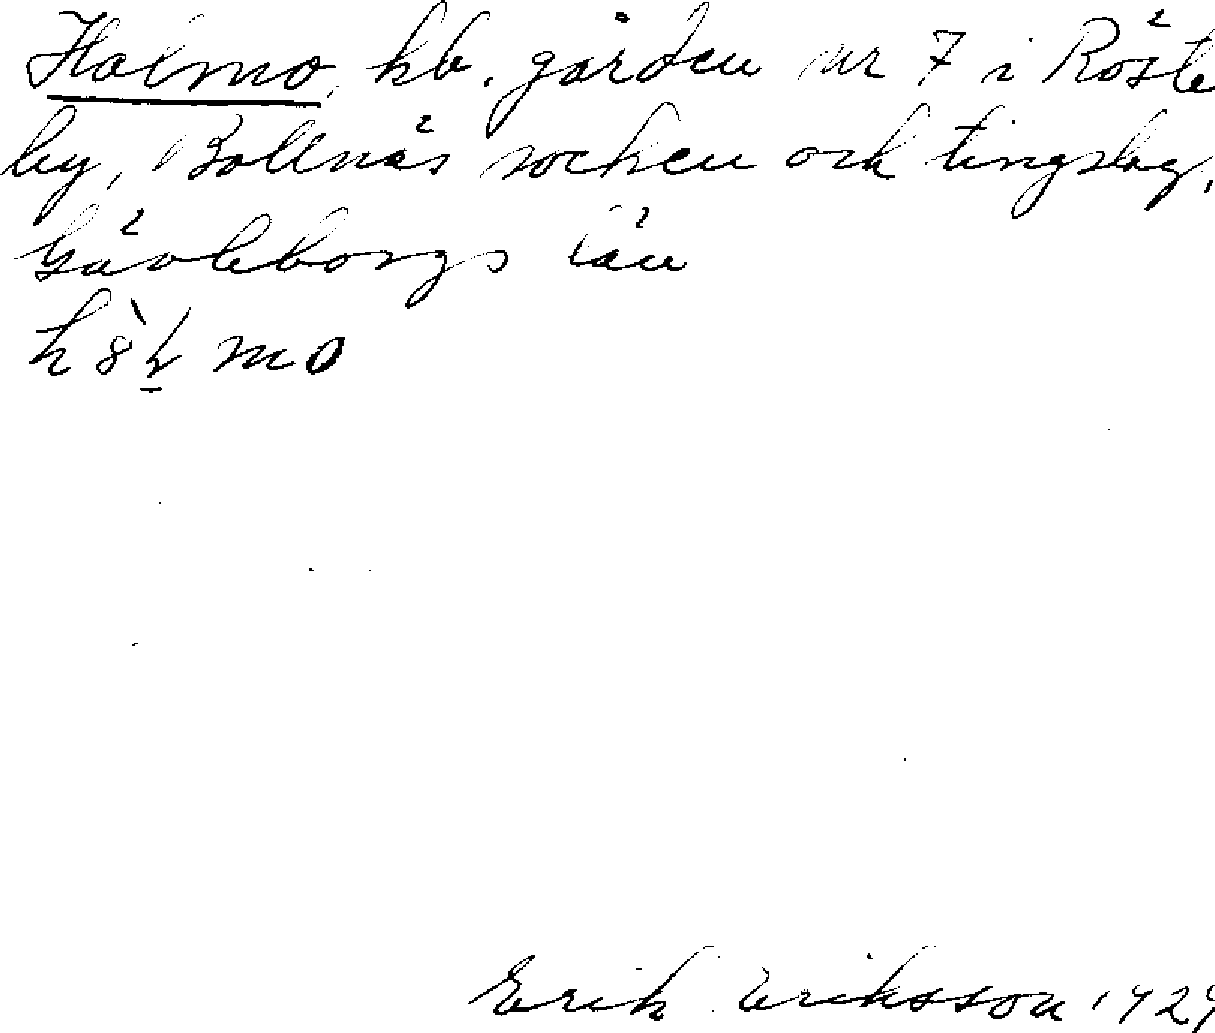 Holmo, hb. gården nr 7 i Röste
by, Bollnäs socken och tingslag,
Gävleborgs län
Erik Eriksson 1929